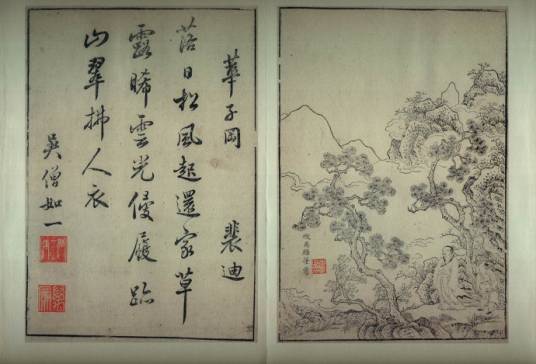 華子岡 裴迪
落日松風起還家草
露晞雲光侵屐跡
山翠拂人衣
吳僧如一